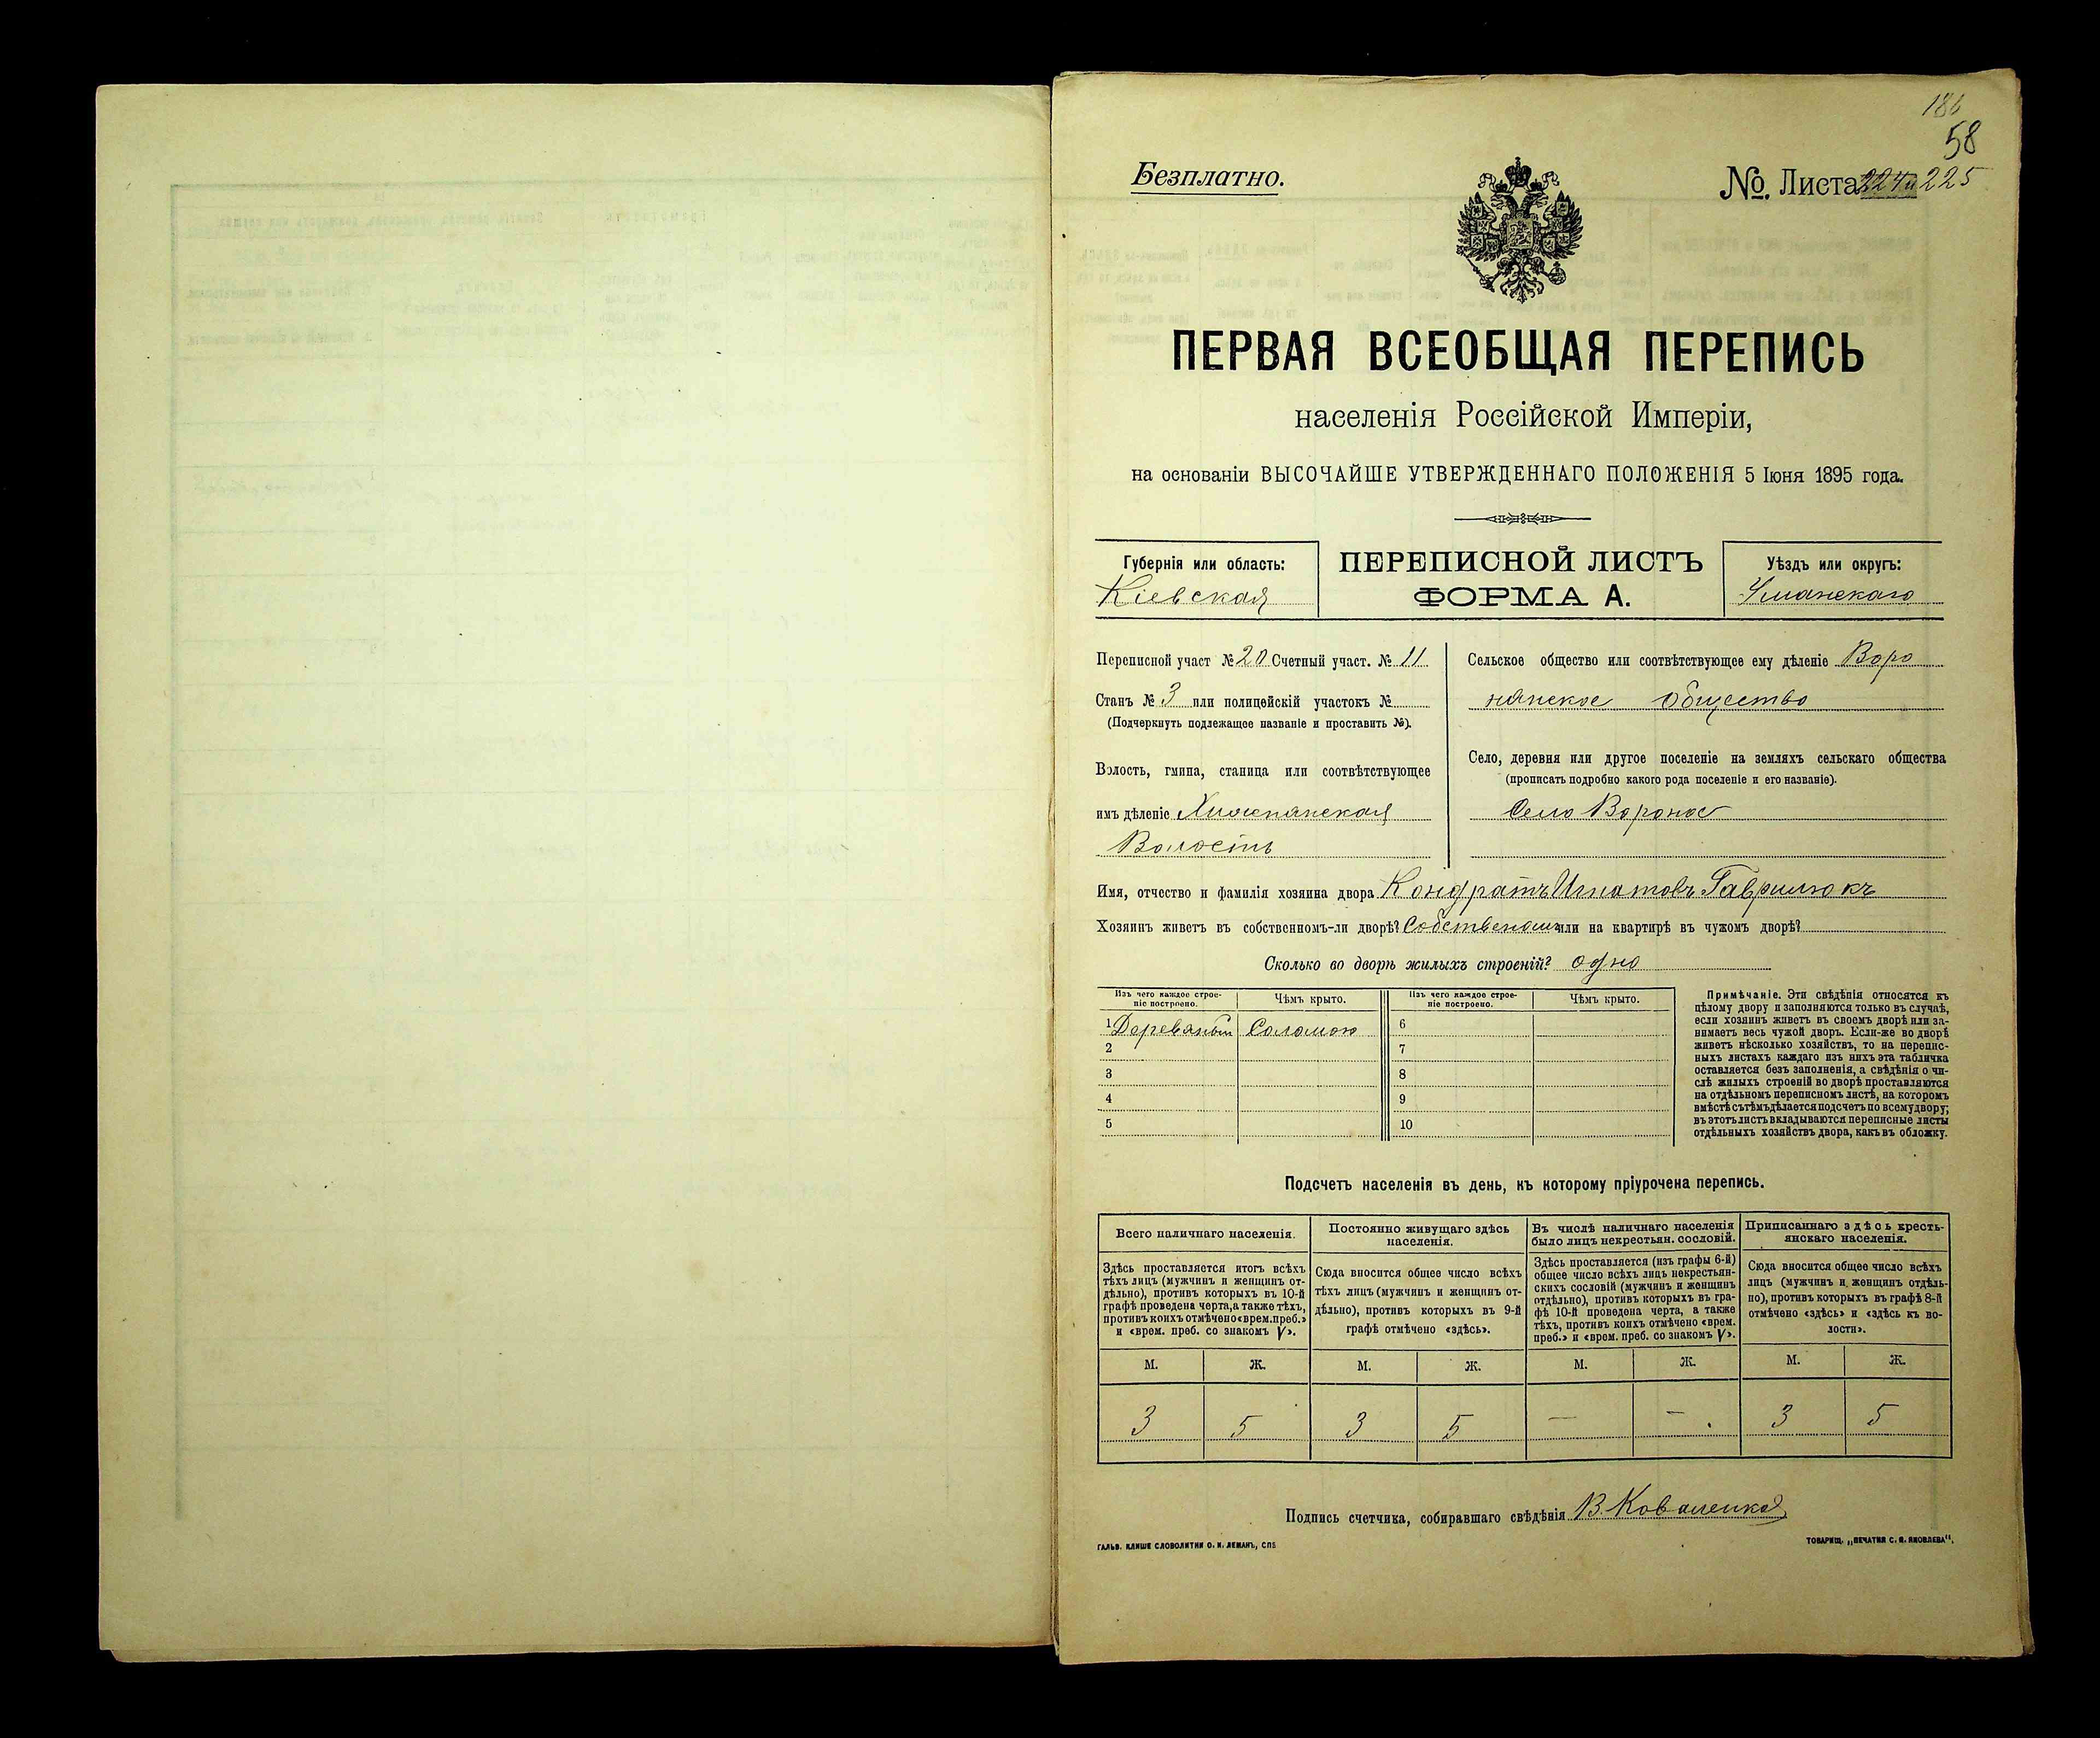 186
58
Безплатно.
№ Листа 225
ПЕРВАЯ ВСЕОБЩАЯ ПЕРЕПИСЬ
населенія Россійской Имперіи,
на основаніи ВЫСОЧАЙШЕ УТВЕРЖДЕННАГО ПОЛОЖЕНІЯ 5 Іюня 1895 года.
Губернія или область:
Кіевская
ПЕРЕПИСНОЙ ЛИСТЪ
ФОРМА А.
Уѣздъ или округъ:
Уманскаго
Переписной участ № 20 Счетный участ. № 11
Станъ № 3 или полицейскій участокъ №
(Подчеркнуть подлежащее названіе и проставить №).
Волость, гмина, станица или соотвѣтствующее
имъ дѣленіе
Волость
Сельское общество или соотвѣтствующее ему дѣленіе Воро
нянское общество
Село, деревня или другое поселеніе на земляхъ сельскаго общества
(прописать подробно какого рода поселеніе и его названіе).
Село Вороное
Имя, отчество и фамилія хозяина двора Кондратъ Игнатовъ Гаврилюкъ
Хозяинъ живетъ въ собственномъ-ли дворѣ? Собственомъ или на квартирѣ въ чужомъ дворѣ?
Сколько во дворѣ жилыхъ строеній? одно
Изъ чего каждое строе-
ніе построено.
Чѣмъ крыто.
Изъ чего каждое строе-
ніе построено.
Чѣмъ крыто.
1 Деревяный Соломою 6
2 7
3 8
4 9
5 10
Примѣчаніе. Эти свѣдѣнія относятся къ
цѣлому двору и заполняются только въ случаѣ,
если хозяинъ живетъ въ своемъ дворѣ или за-
нимаетъ весь чужой дворъ. Если-же во дворѣ
живетъ нѣсколько хозяйствъ, то на перепис-
ныхъ листахъ каждаго изъ нихъ эта табличка
оставляется безъ заполненія, а свѣдѣнія о чи-
слѣ жилыхъ строеній во дворѣ проставляются
на отдѣльномъ переписномъ листѣ, на которомъ
вмѣстѣ съ тѣмъ дѣлается подсчетъ по всему двору;
въ этотъ листъ вкладываются переписные листы
отдѣльныхъ хозяйствъ двора, какъ въ обложку.
Подсчетъ населенія въ день, къ которому пріурочена перепись.
Всего наличнаго населенія.
Здѣсь проставляется итогъ всѣхъ
тѣхъ лицъ (мужчинъ и женщинъ от-
дѣльно), противъ которыхъ въ 10-й
графѣ проведена черта, а также тѣхъ,
противъ коихъ отмѣчено «врем. преб.»
и «врем. преб. со знакомъ V».
Постоянно живущаго здѣсь
населенія.
Сюда вносится общее число всѣхъ
тѣхъ лицъ (мужчинъ и женщинъ от-
дѣльно), противъ которыхъ въ 9-й
графѣ отмѣчено «здѣсь».
Въ числѣ наличнаго населенія
было лицъ некрестьян. сословій.
Здѣсь проставляется (изъ графы 6-й)
общее число всѣхъ лицъ некрестьян-
скихъ сословій (мужчинъ и женщинъ
отдѣльно), противъ которыхъ въ гра-
фѣ 10-й проведена черта, а также
тѣхъ, противъ коихъ отмѣчено «врем.
преб.» и «врем. преб. со знакомъ V».
Приписаннаго здѣсь кресть-
янскаго населенія.
Сюда вносится общее число всѣхъ
лицъ (мужчинъ и женщинъ отдѣль-
но), противъ которыхъ въ графѣ 8-й
отмѣчено «здѣсь» и «здѣсь къ во-
лости».
М. Ж. М. Ж. М. Ж. М. Ж.
3 5 3 5 — — 3 5
Подпись счетчика, собиравшаго свѣдѣнія В. Коваленко
ГАЛЬВ. КЛИШЕ СЛОВОЛИТНИ О. И. ЛЕМАНЪ, СПБ
ТОВАРИЩ. „ПЕЧАТНЯ С. П. ЯКОВЛЕВА“,